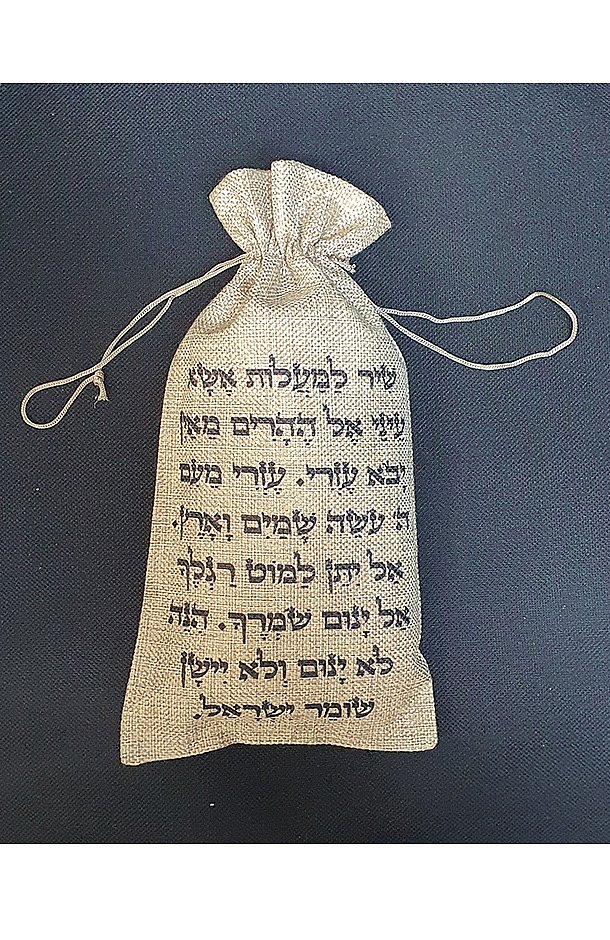 שִׁיר לַמַּעֲלוֹת אֶשָּׂא
עֵינַי אֶל הֶהָרִים מֵאַיִן
יָבֹא עֶזְרִי. עֶזְרִי מֵעִם
ה' עֹשֵׂה שָׁמַיִם וָאָרֶץ.
אַל יִתֵּן לַמּוֹט רַגְלֶךָ
אַל יָנוּם שֹׁמְרֶךָ. הִנֵּה
לֹא יָנוּם וְלֹא יִישָׁן
שׁוֹמֵר יִשְׂרָאֵל.